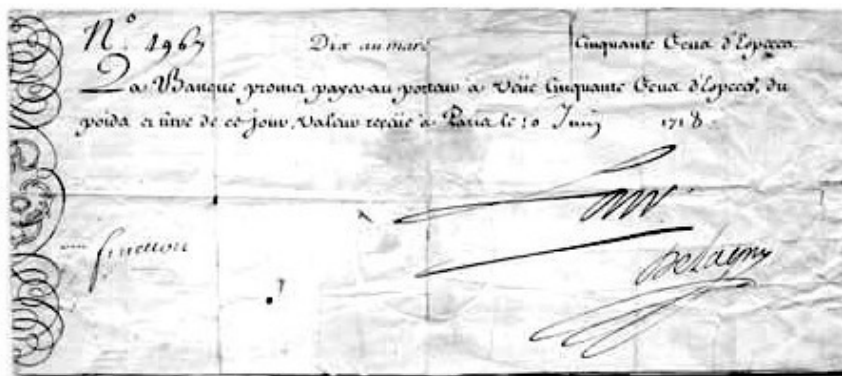 N.º 4967 Dix au marc Cinquante Ecus d'Especes.
La Banque promet payer au porteur à Veüe Cinquante Ecus d'Especes, du
poids et titre de ce jour, Valeur reçeüe à Paris le 10 Juin 1718.
Law.
fenellon
De Lagny